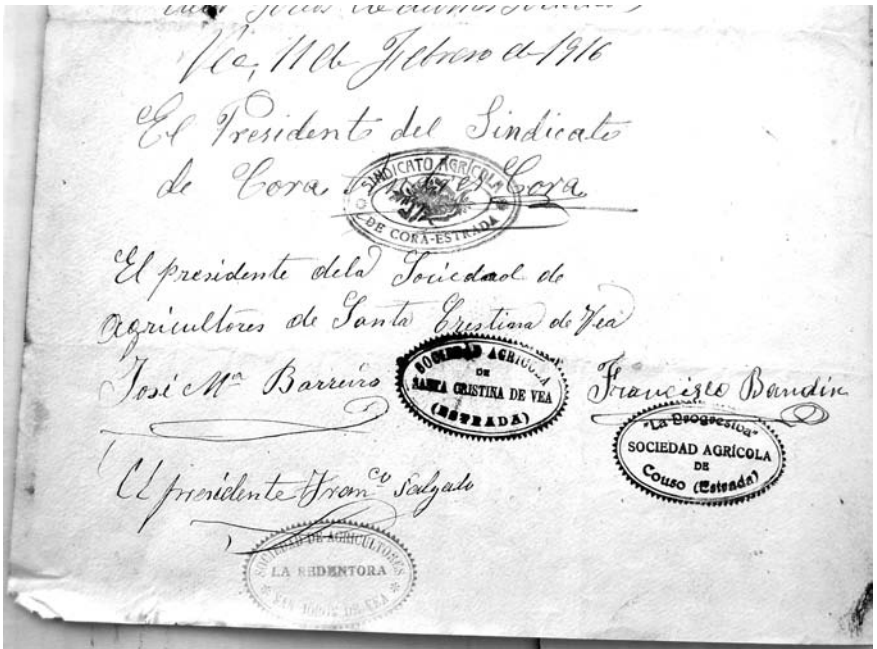 Vea, 11 de Febrero de 1916
El Presidente del Sindicato
de Cora
Cora
SINDICATO AGRÍCOLA
DE CORA-ESTRADA
El presidente dela Sociedad de
Agricultores de Santa Crestina de Vea
José Mª Barreiro
SOCIEDAD AGRICOLA
DE
SANTA CRISTINA DE VEA
(ESTRADA)
Francisco Bandin
"La Progresiva"
SOCIEDAD AGRÍCOLA
DE
Couso (Estrada)
El presidente Franco Salgado
SOCIEDAD DE AGRICULTORES
LA REDENTORA
SAN JORGE DE VEA